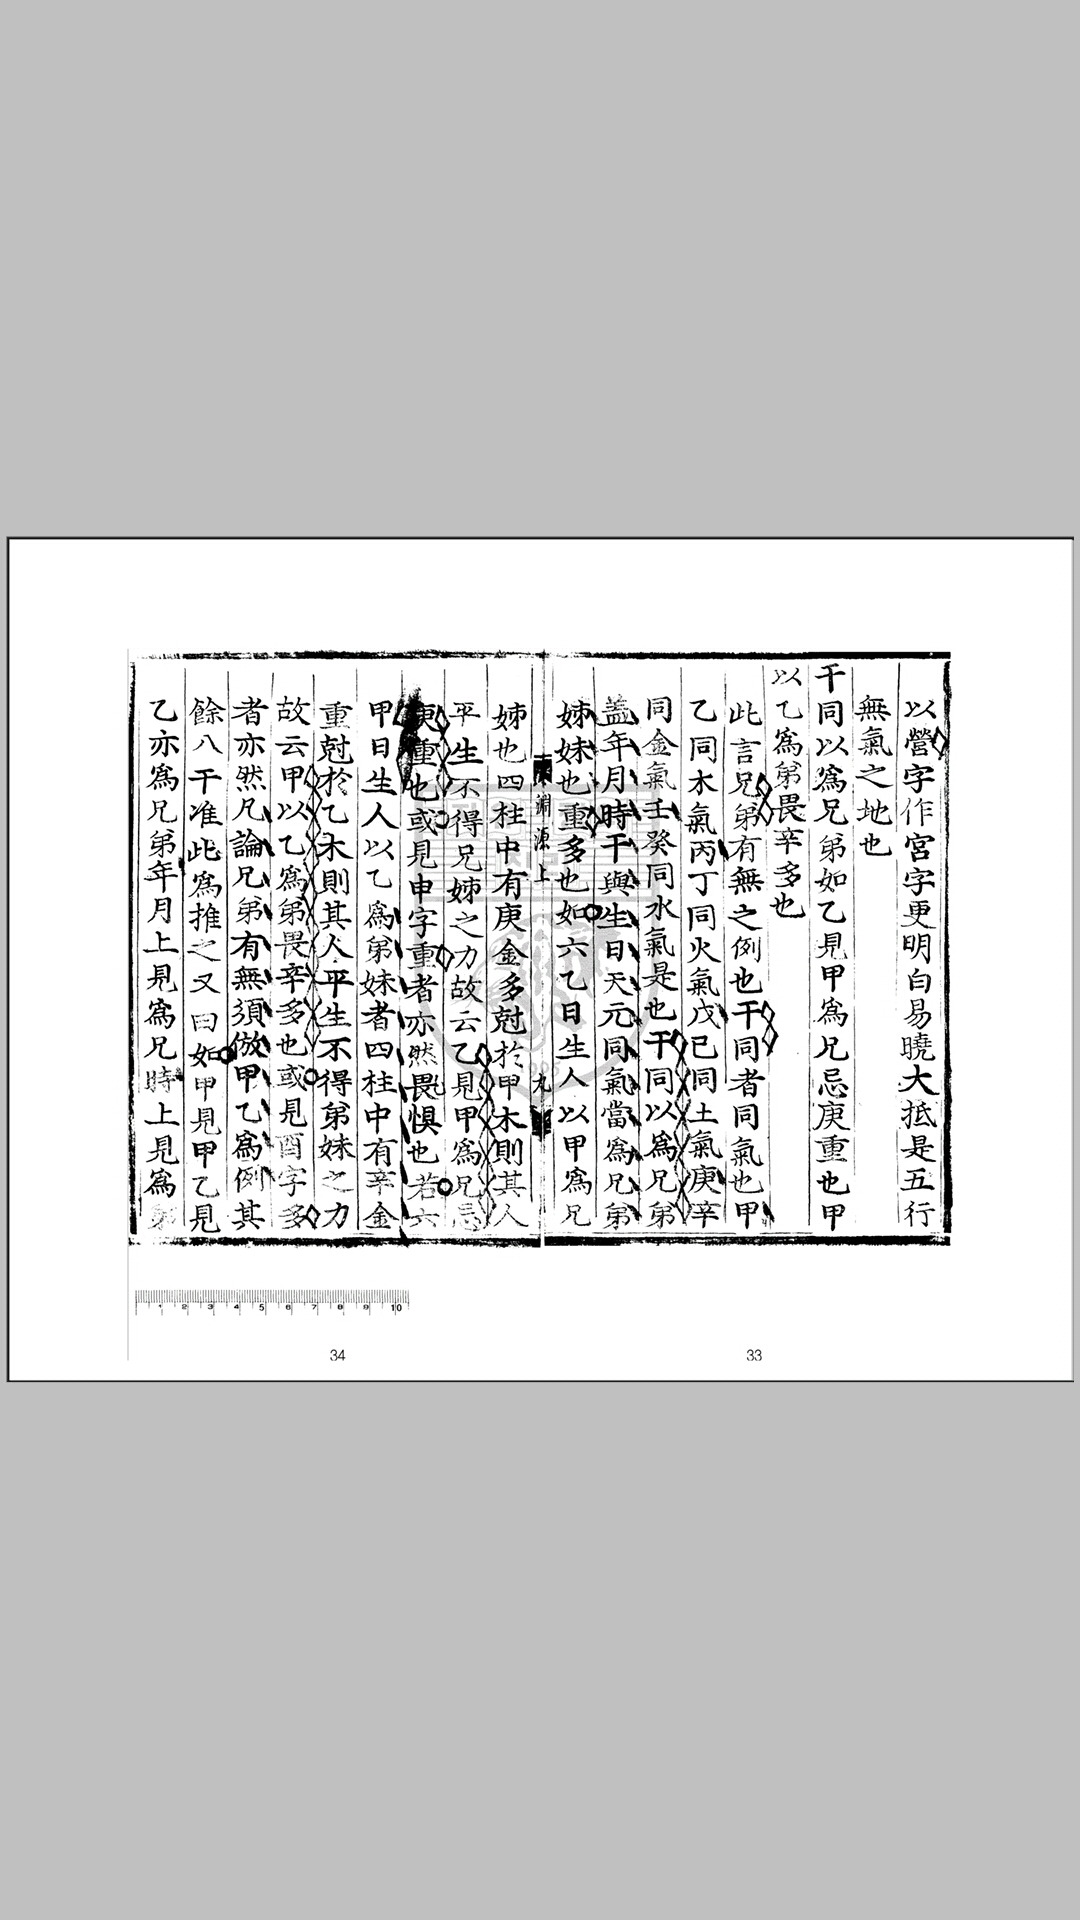 以營字作宮字更明白易曉大抵是五行
無氣之地也
干同以爲兄弟如乙見甲爲兄忌庚重也甲
以乙爲弟畏辛多也
此言兄弟有無之例也干同者同氣也甲
乙同木氣丙丁同火氣戊己同土氣庚辛
同金氣壬癸同水氣是也干同以爲兄弟
盖年月時干與生日天元同氣當爲兄弟
姊妹也重多也如六乙日生人以甲爲兄
淵源上
九
姊也四柱中有庚金多尅於甲木則其人
平生不得兄姊之力故云乙見甲爲兄忌
庚重也或見申字重者亦然畏惧也若六
甲日生人以乙爲弟妹者四柱中有辛金
重尅於乙木則其人平生不得弟妹之力
故云甲以乙爲弟畏辛多也或見酉字多
者亦然凡論兄弟有無須倣甲乙爲例其
餘八干准此爲推之又曰如甲見甲乙見
乙亦爲兄弟年月上見爲兄時上見爲弟
1 2 3 4 5 6 7 8 9 10
34
33